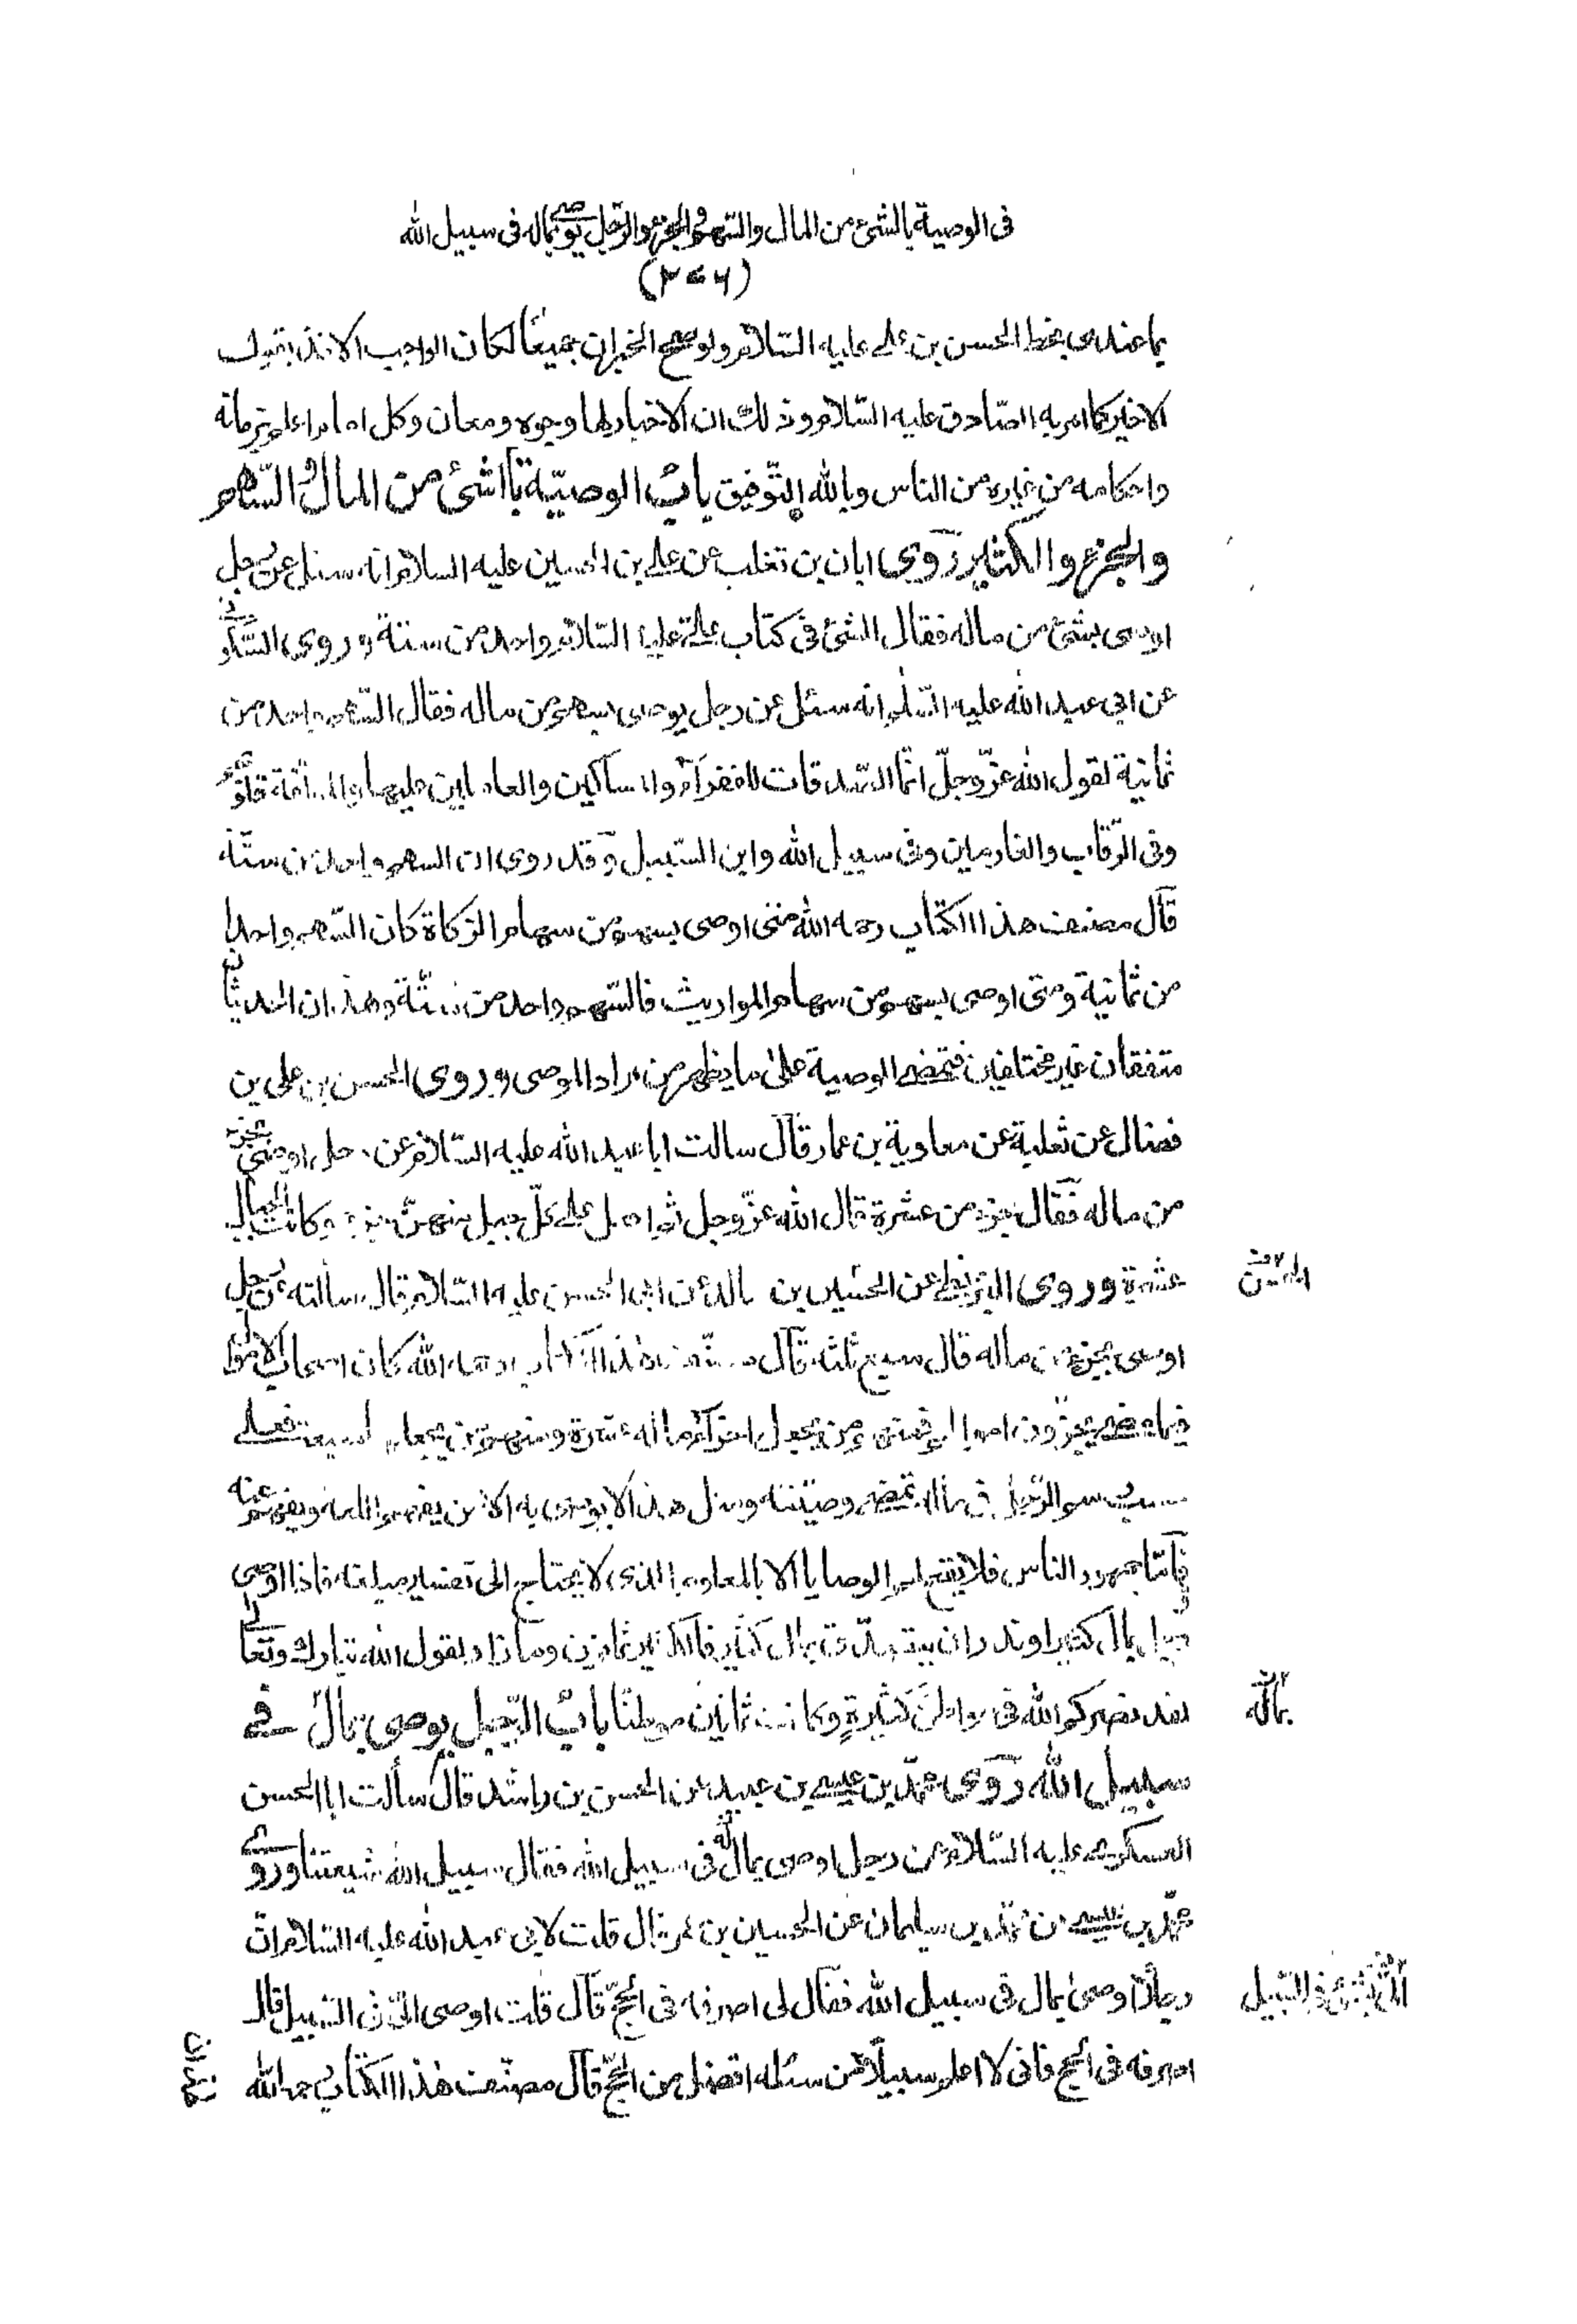 فى الوصية بالشئ من المال والسهم والجزء والرجل يوصى بماله فى سبيل الله
(٢٧٦)
بما عندى بخط الحسن بن على عليه السّلام ولو صح الخبران جميعًا لكان الواجب الاخذ بقول
الاخير كما امر به الصّادق عليه السّلام وذلك ان الاخبار لها وجوه ومعان وكل امام اعلم بزمانه
واحكامه من غيره من الناس وبالله التّوفيق باب الوصيّة بالشئ من المال والسّهم
والجزء والكثير روى ابان بن تغلب عن على بن الحسين عليه السلام انه سئل عن رجل
اوصى بشئ من ماله فقال الشئ فى كتاب على عليه السّلام واحد من ستة وروى السّكونى
عن ابى عبد الله عليه السّلم انه سئل عن رجل يوصى بسهم من ماله فقال السّهم واحد من
ثمانية لقول الله عزّ وجلّ انّما الصّدقات للفقرآء والمساكين والعاملين عليها والمؤلّفة قلوبهم
وفى الرّقاب والغارمين وفى سبيل الله وابن السّبيل وقد روى ان السهم واحد من ستّة
قال مصنف هذا الكتاب رحمه الله متى اوصى بسهم من سهام الزكاة كان السّهم واحدا
من ثمانية ومتى اوصى بسهم من سهام المواريث فالسّهم واحد من ستّة وهذان الحديثان
متفقان غير مختلفين فتمضى الوصية على ما يظهر من مراد الموصى وروى الحسن بن على بن
فضال عن ثعلبة عن معاوية بن عمار قال سالت ابا عبد الله عليه السّلام عن رجل اوصى بجزء
من ماله فقال جزء من عشرة قال الله عزّ وجل ثم اجعل على كلّ جبل منهنّ جزء وكانت الجبال
عشرة وروى البزنطى عن الحسين بن خالد عن ابى الحسن عليه السّلام قال سألته عن رجل
اوصى بجزء من ماله قال سبع ثلثه قال مصنّف هذا الكتاب رحمه الله كان اصحاب الاموال
فيما مضى يجزّون اموالهم فمنهم من يجعل اجزآء ماله عشرة ومنهم من يجعلها سبعة فعلى
حسب رسم الرّجل فى ماله تمضى وصيّته ومثل هذا لا يوصى به الا من يفهم اللغة ويفهم عنه
فامّا جمهور الناس فلا يقع لهم الوصايا الا بالمعلوم الذى لا يحتاج الى تفسير مبلغه فاذا اوصى
رجل بمال كثير او نذر ان يتصدّق بمال كثير فالكثير ثمانون وما زاد لقول الله تبارك وتعالى
لقد نصركم الله فى مواطن كثيرةٍ وكانت ثمانين موطنًا باب الرّجل يوصى بمال فى
سبيل الله روى محمّد بن عيسى بن عبيد عن الحسن بن راشد قال سألت ابا الحسن
العسكرى عليه السّلام عن رجل اوصى بمال فى سبيل الله فقال سبيل الله شيعتنا وروى
محمّد بن عيسى عن محمّد بن سليمان عن الحسين بن عمر قال قلت لابى عبد الله عليه السّلام انّ
رجلًا اوصى بمال فى سبيل الله فقال لى اصرفه فى الحجّ قال قلت اوصى الىّ فى السّبيل قال
اصرفه فى الحج فانى لا اعلم سبيلًا من سبله افضل من الحجّ قال مصنّف هذا الكتاب رحمه الله
بماله